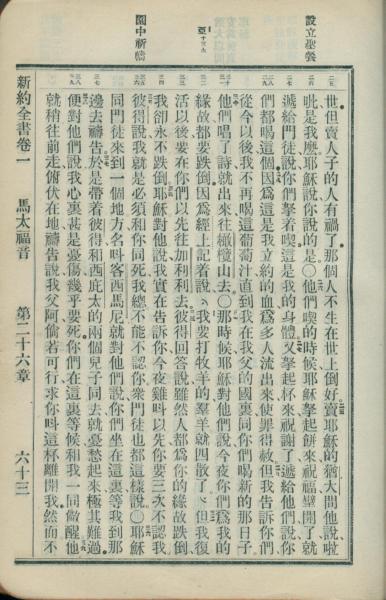 設立聖餐
亞十三〇七
園中祈禱
世但賣人子的人有禍了那個人不生在世上倒好賣耶穌的猶大問他說啦
吡是我麽耶穌說你說的是〇他們喫的時候耶穌拏起餅來祝福擘開了就
遞給門徒說你們拏着喫這是我的身體又拏起杯來祝謝了遞給他們說你
們都喝這個因爲這是我立約的血爲多人流出來使罪得赦但我告訴你們
從今以後我不再喝這葡萄汁直到我在我父的國裏同你們喝新的那日子
他們唱了詩就出來往橄欖山去〇那時候耶穌對他們說今夜你們爲我的
緣故都要跌倒因爲經上記着說我要打牧羊的羣羊就四散了但我復
活以後要在你們以先往加利利去彼得回答說雖然人都爲你的緣故跌倒
我卻永不跌倒耶穌對他說我實在告訴你今夜雞呌以先你要三次不認我
彼得說我就是必須和你同死我總不能不認你衆門徒也都這樣說〇耶穌
同門徒來到一個地方名呌客西馬尼就對他們說你們坐在這裏等我到那
邊去禱告於是帶着彼得和西庇太的兩個兒子同去就憂愁起來極其難過
便對他們說我心裏甚是憂傷幾乎要死你們在這裏等候和我一同儆醒他
就稍往前走俯伏在地禱告說我父阿倘若可行求你呌這杯離開我然而不
新約全書卷一 馬太福音 第二十六章 六十三